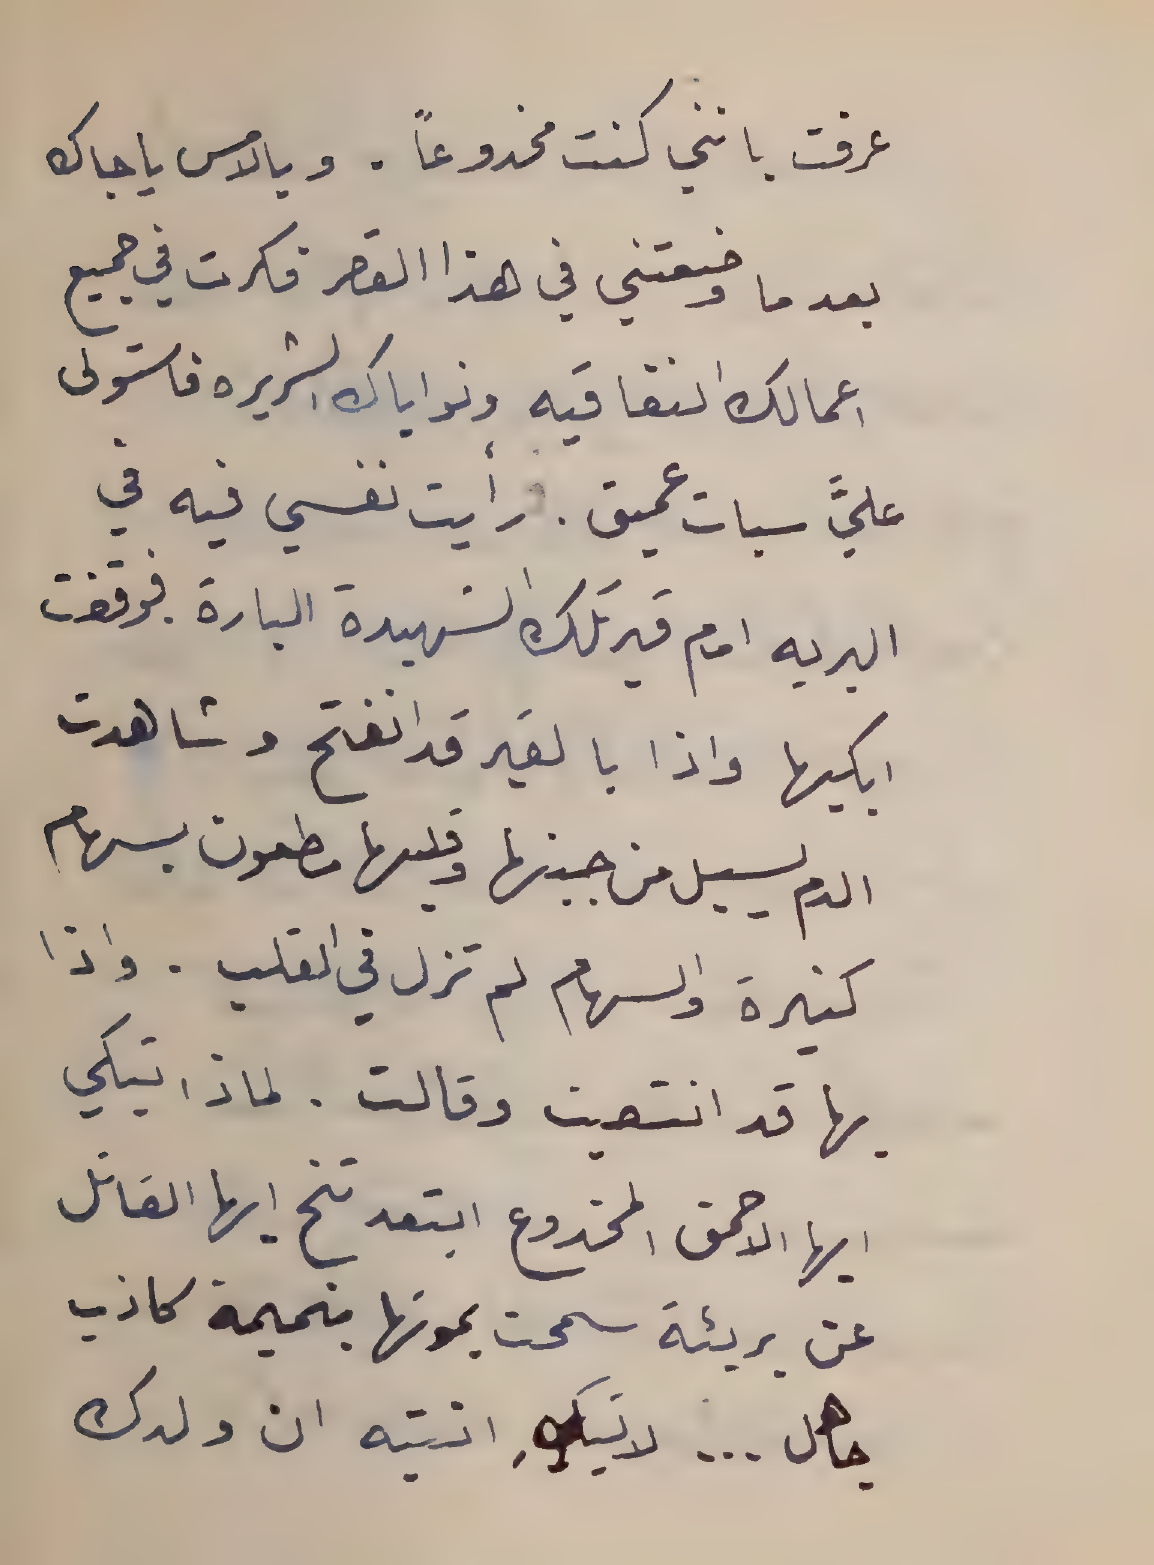 عرفت بانني كنت مخدوعاً . وبالامس ياجاك
بعد ما وضعتني في هذا القصر فكرت في جميع
اعمالك النفاقيه ونواياك الشريره فاستولى
عليَّ سبات عميق . ورأيت نفسي فيه في
البريه امام قبر تلك الشهيدة البارة فوقفت
ابكيها واذا بالقبر قد انفتح وشاهدت
الدم يسيل من جبينها وقلبها مطعون بسهام
كثيرة والسهام لم تزل في القلب . واذا
بها قد انتصبت وقالت . لماذا تبكي
ايها الاحمق المخدوع ابتعد تنح ايها القاتل
عن بريئة سمحت بموتها بنميمة كاذب
جاهل ... لا تبكِ انتبه ان ولدك